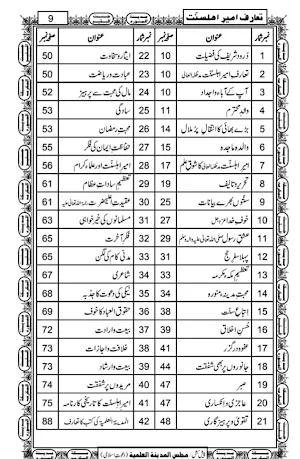 تعارف امیر اہلسنت 9
نمبر شمار عنوان صفحہ نمبر نمبر شمار عنوان صفحہ نمبر
1 درود شریف کی فضیلت 10 22 ایثار و سخاوت 50
2 تعارف امیر اہلسنت 10 23 عبادت و ریاضت 50
3 آپ کے آباء و اجداد 10 24 مال کی محبت سے پرہیز 52
4 والد محترم 11 25 سادگی 53
5 بڑے بھائی کا انتقال پر ملال 14 26 محبت رمضان 53
6 والدہ ماجدہ 15 27 حفاظت ایمان کی فکر 55
7 امیر اہلسنت کا شوق علم 17 28 امیر اہلسنت اور علماء کرام 56
8 تحریر و تالیف 19 29 تعظیم سادات عظام 61
9 سنتوں بھرے بیانات 25 30 عقیدت 61
10 خوف خدا 27 31 مسلمانوں کی خیر خواہی 63
11 عشق رسول 29 32 فکر آخرت 65
12 پہلا سفر حج 31 33 مدنی کام کی لگن 65
13 تعظیم مکہ مکرمہ 33 34 شاعری 67
14 محبت مدینہ منورہ 34 35 نیکی کی دعوت کا جذبہ 68
15 اتباع سنت 38 36 حقوق العباد کا خوف 69
16 حسن اخلاق 39 37 بیعت و ارادت 72
17 عفو و درگزر 41 38 خلافت و اجازات 73
18 جانوروں پر بھی شفقت 44 39 بیعت و ارشاد 73
19 صبر 47 40 مریدوں پر شفقت 74
20 عاجزی و انکساری 47 41 امیر اہلسنت کا تاریخی کارنامہ 75
21 تقویٰ و پرہیزگاری 48 42 المدینۃ العلمیۃ کی کتب کا تعارف 88
پیش کش: مجلس المدینۃ العلمیۃ (دعوت اسلامی)